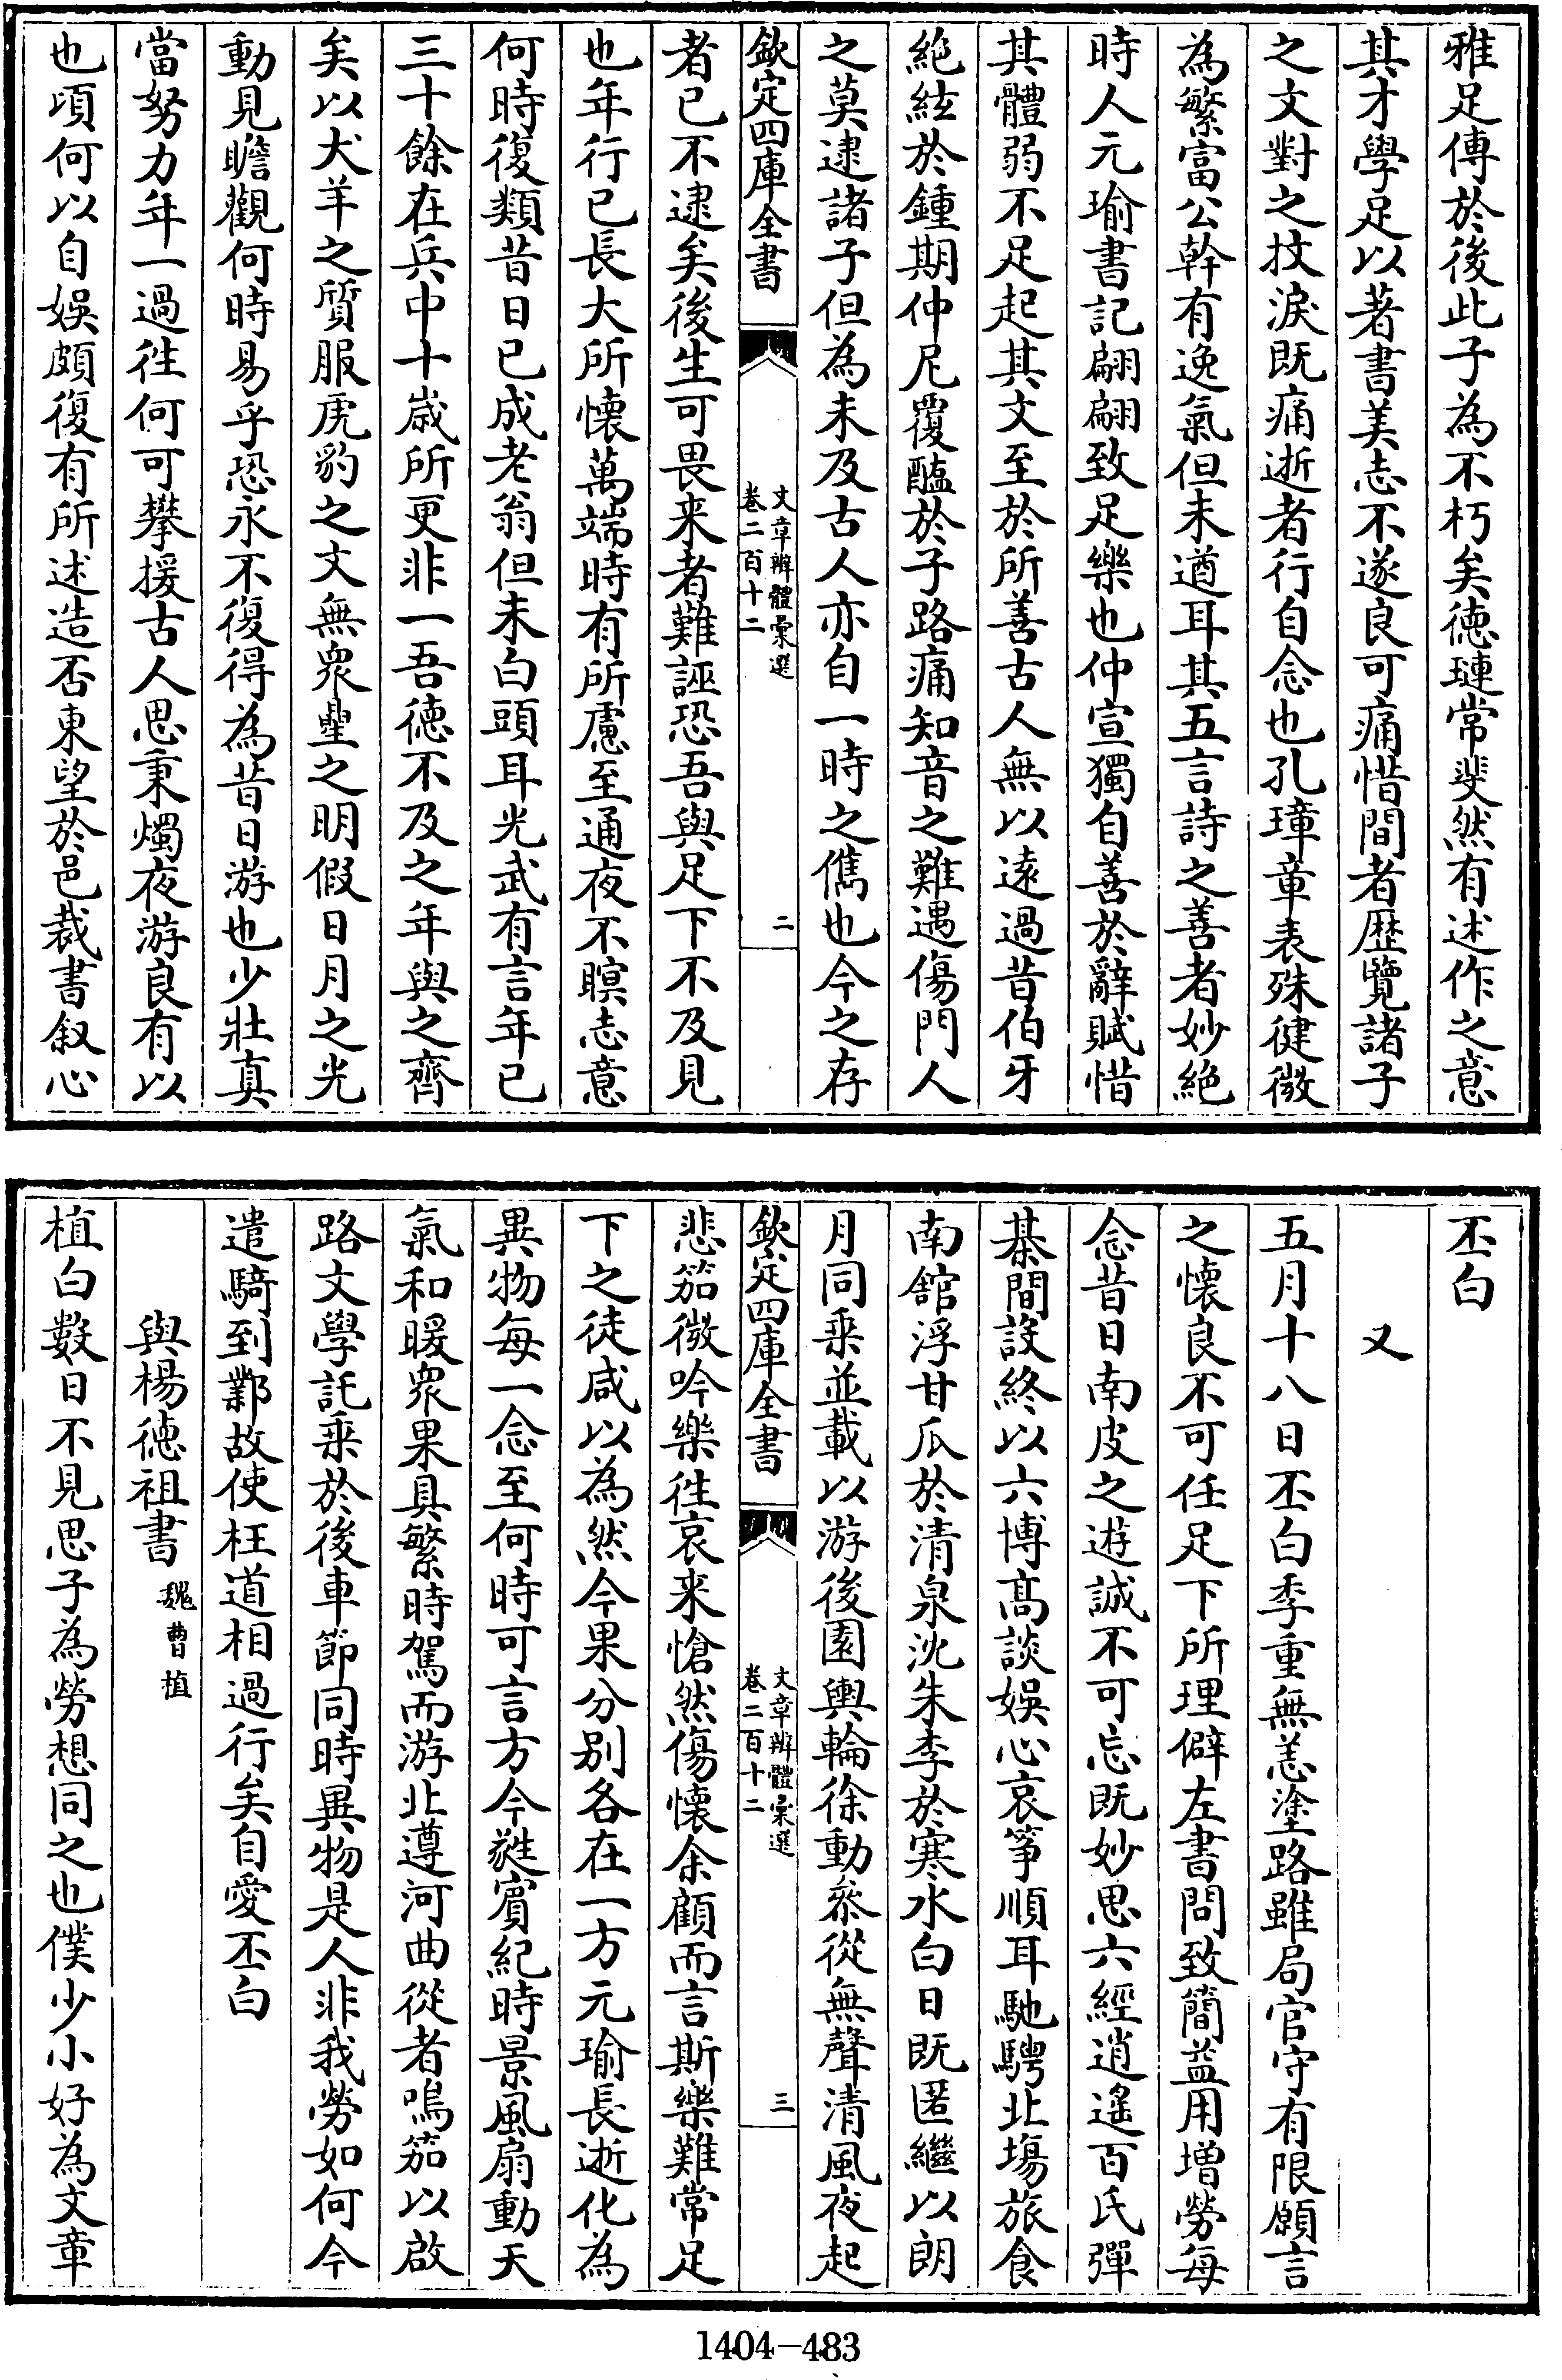 雅足傳於後此子為不朽矣徳璉常斐然有述作之意
其才學足以著書美志不遂良可痛惜間者歴覽諸子
之文對之抆淚既痛逝者行自念也孔璋章表殊健微
為繁富公幹有逸氣但未遒耳其五言詩之善者妙絶
時人元瑜書記翩翩致足樂也仲宣獨自善於辭賦惜
其體弱不足起其文至於所善古人無以逺過昔伯牙
絶絃於鍾期仲尼覆醢於子路痛知音之難遇傷門人
之莫逮諸子但為未及古人亦自一時之儁也今之存
欽定四庫全書
文章辨體彚選
卷二百十二
二
者已不逮矣後生可畏来者難誣恐吾與足下不及見
也年行已長大所懐萬端時有所慮至通夜不瞑志意
何時復類昔日已成老翁但未白頭耳光武有言年已
三十餘在兵中十嵗所更非一吾徳不及之年與之齊
矣以犬羊之質服虎豹之文無衆星之明假日月之光
動見瞻觀何時易乎恐永不復得為昔日游也少壯真
當努力年一過往何可攀援古人思秉燭夜游良有以
也頃何以自娛頗復有所述造否東望於邑裁書叙心
丕白
又
五月十八日丕白季重無恙塗路雖局官守有限願言
之懐良不可任足下所理僻左書問致簡益用増勞每
念昔日南皮之遊誠不可忘既妙思六經逍遙百氏彈
棊間設終以六博髙談娛心哀筝順耳馳騁北場旅食
南舘浮甘瓜於清泉沈朱李於寒水白日既匿繼以朗
月同乗並載以游後園輿輪徐動叅從無聲清風夜起
欽定四庫全書
文章辨體彚選
卷二百十二
三
悲笳微吟樂往哀来愴然傷懐余顧而言斯樂難常足
下之徒咸以為然今果分别各在一方元瑜長逝化為
異物每一念至何時可言方今蕤賓紀時景風扇動天
氣和暖衆果具繁時駕而游北遵河曲從者鳴笳以啟
路文學託乗於後車節同時異物是人非我勞如何今
遣騎到鄴故使枉道相過行矣自愛丕白
與楊徳祖書 魏曹植
植白數日不見思子為勞想同之也僕少小好為文章
1404-483